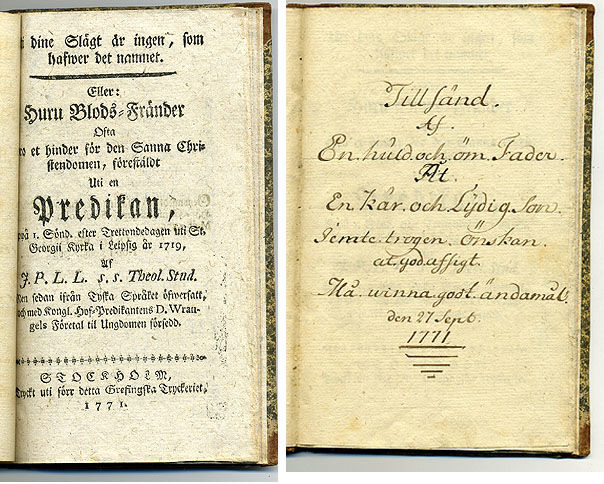 dine Slägt är ingen, som
hafwer det namnet.
Eller:
Huru Blods-Fränder
Ofta
et hinder för den Sanna Chri-
stendomen, förestäldt
Uti en
Predikan,
på 1. Sönd. efter Trettondedagen uti St.
Georgii Kyrka i Leipsig år 1719,
Af
J. P. L. L. s. s. Theol. Stud.
sedan ifrån Tyska Språket öfwersatt,
och med Kongl. Hof-Predikantens D. Wran-
gels Företal til Ungdomen försedd.
STOCKHOLM,
Tryckt uti förr detta Grefingska Tryckeriet,
1771.
Till sänd.
Af.
En. huld. och. öm. Fader.
At.
En. Kär. och. Lydig. Son.
Jemte. trogen. Önskan.
at. god. afsigt.
Må. winna. godt. ändamål.
den 27 Sept.
1771